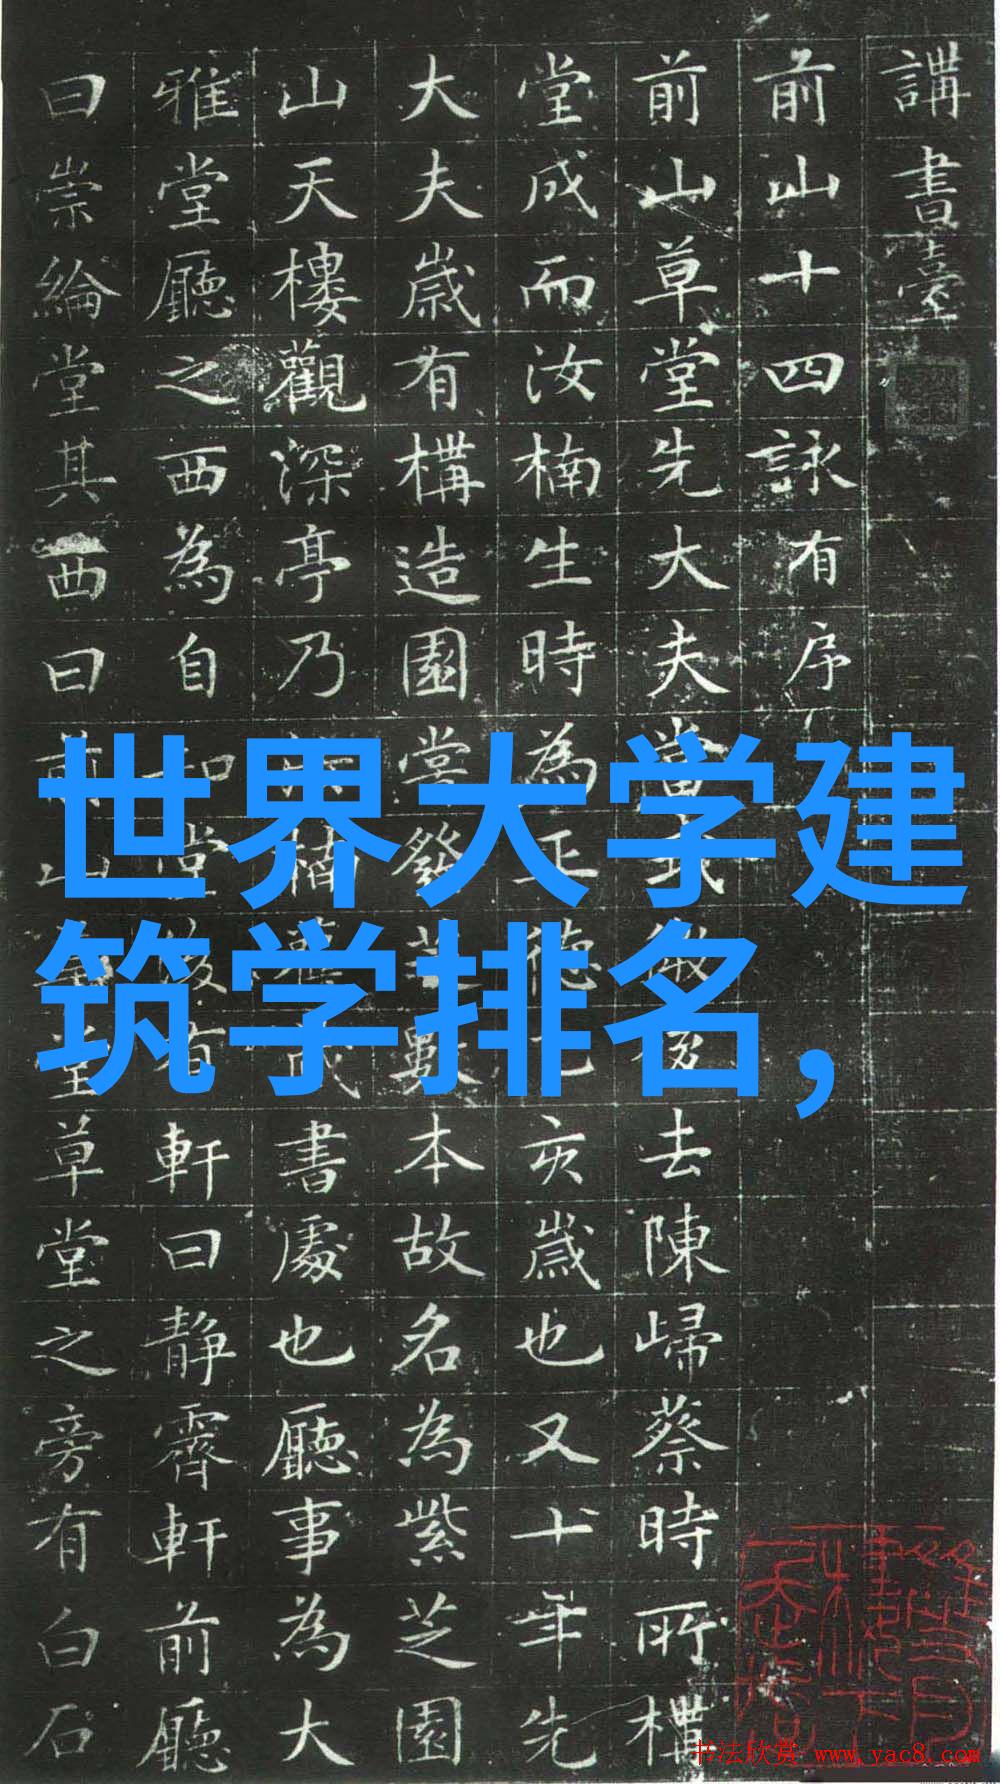 講書臺
前山十四詠有序
前山草堂先大夫當去陳歸蔡時所
堂成而汝楠生時為正德乙亥歲也又十年先
大夫歲有構造園堂發芝數本故名為紫芝園
山天樓觀深亭乃楠舊書處也廳事為大
雅堂廳之西為自知堂後有軒曰靜霽軒前廳
曰崇綸堂其西曰前山堂草堂之旁有白石
世界大学建
筑学排名,
书法欣赏 www.yac8.com